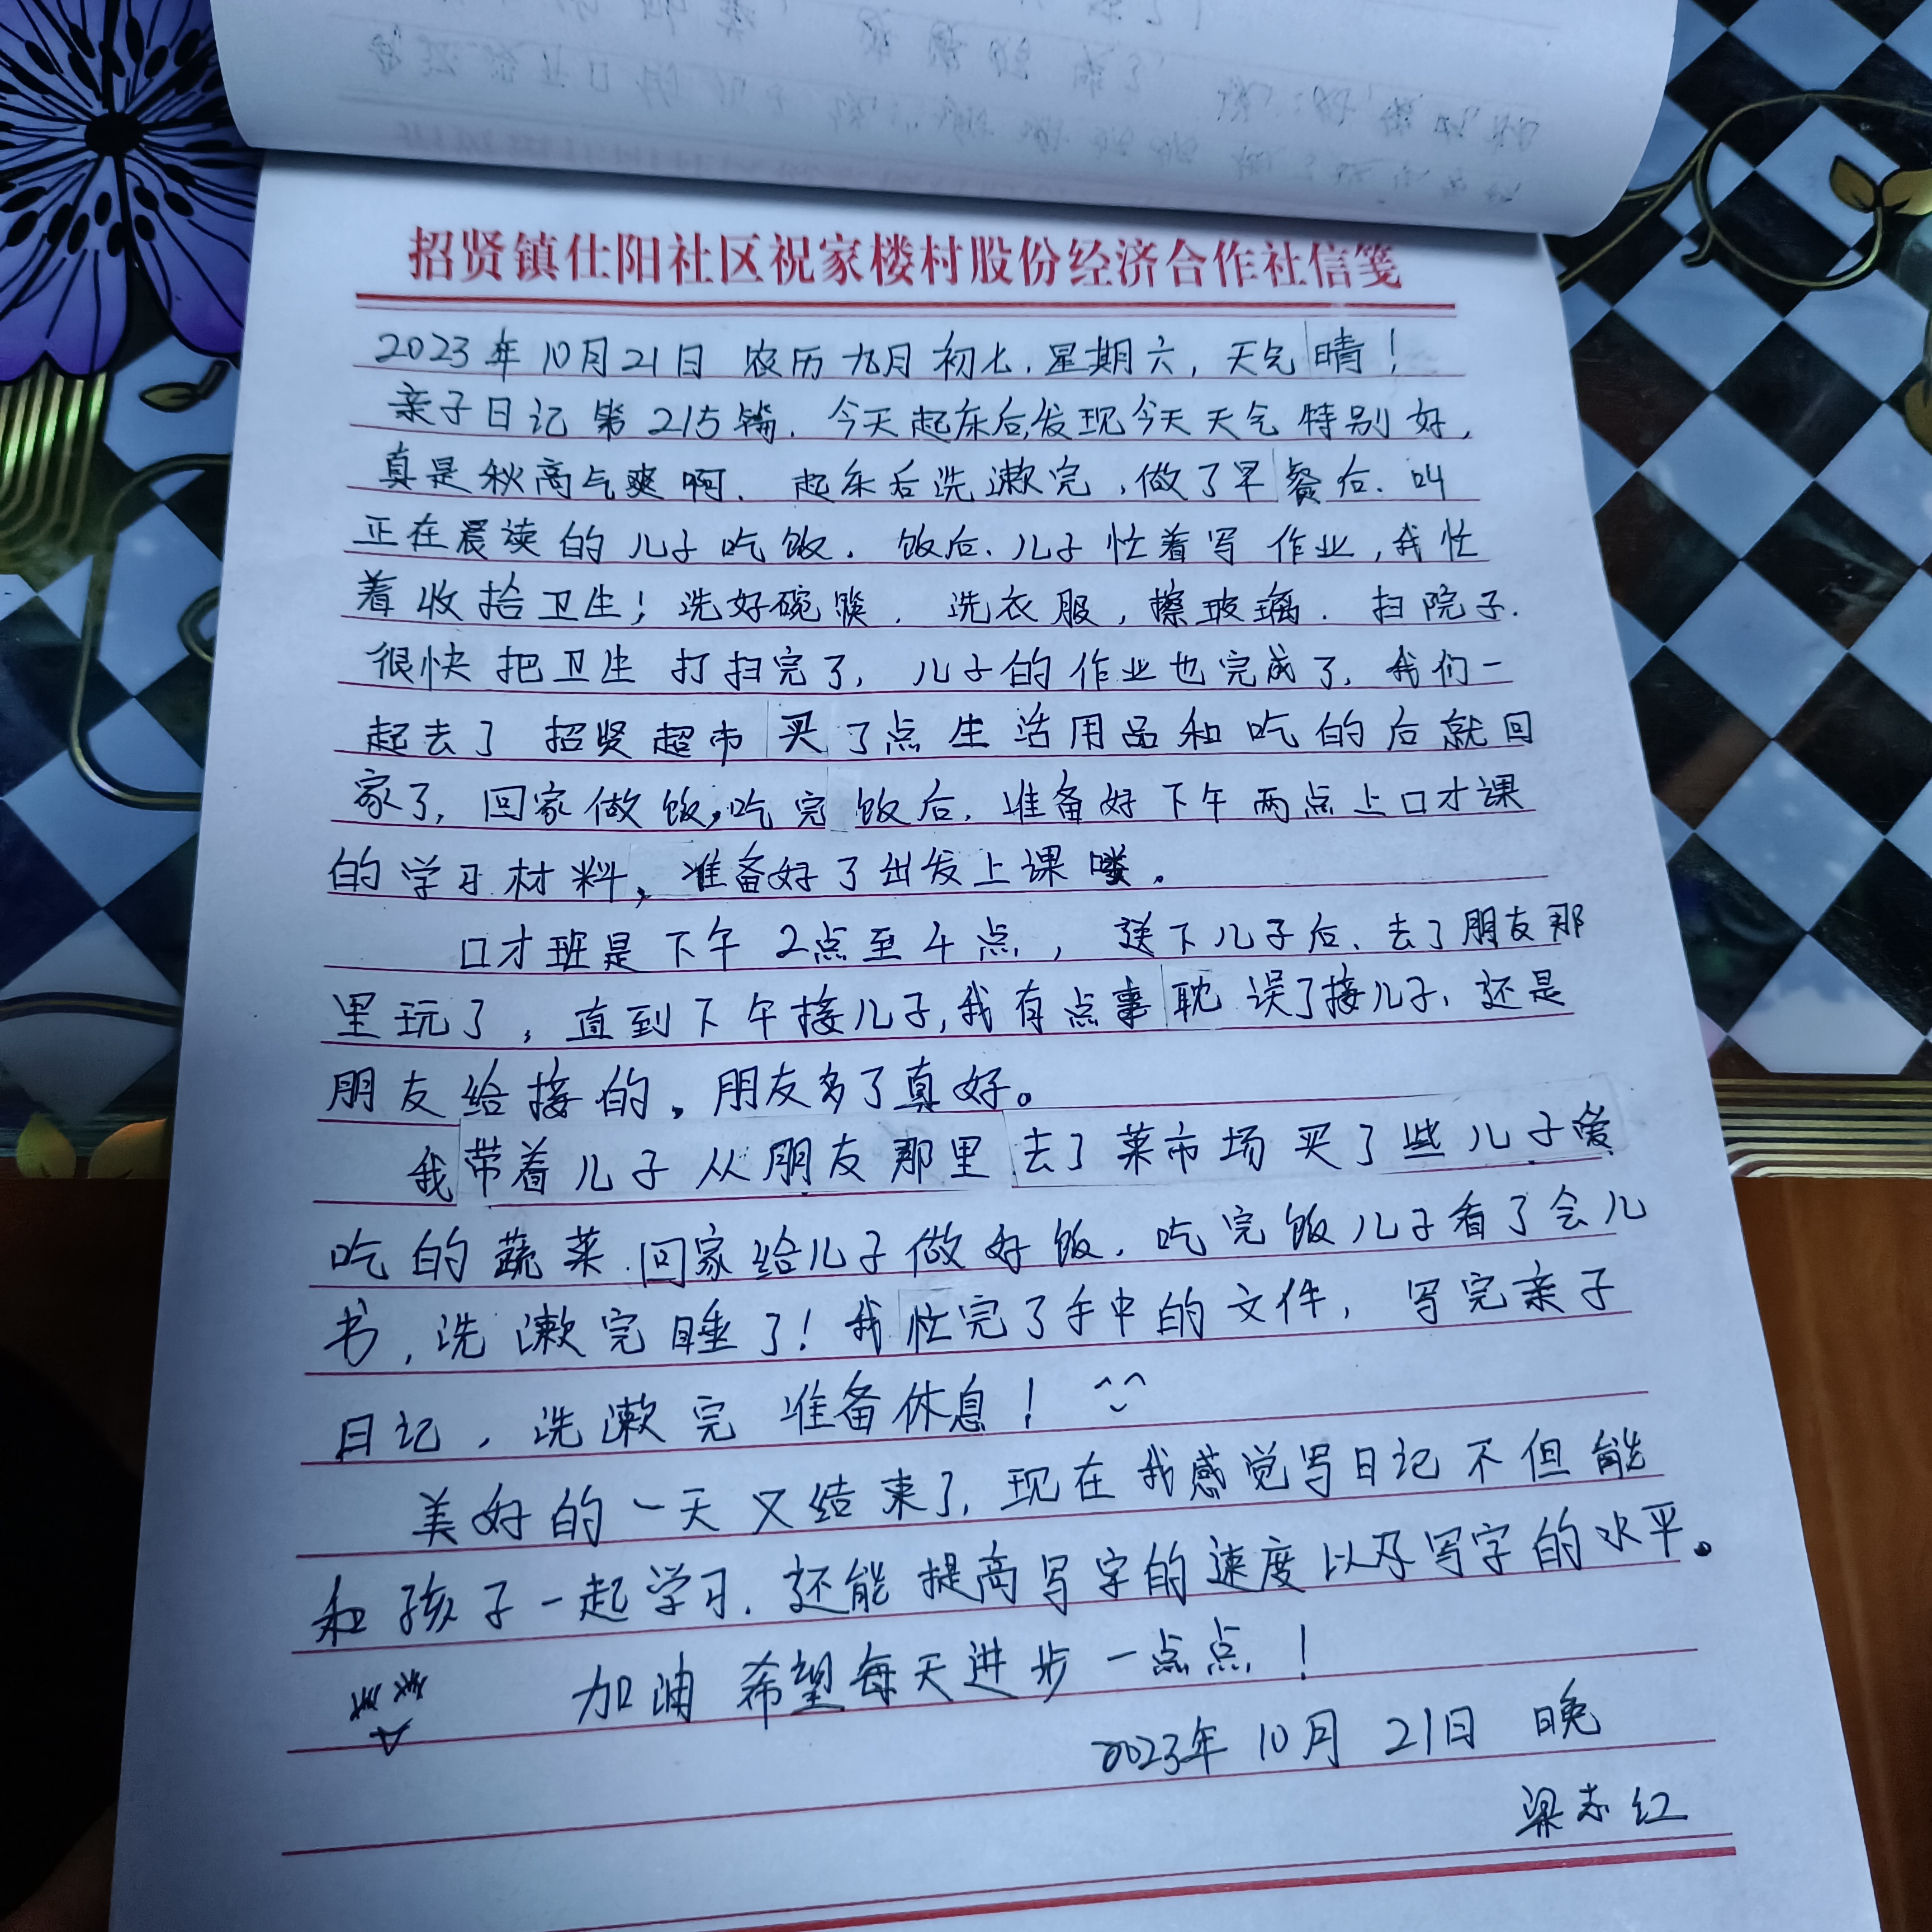 招贤镇仕阳社区祝家楼村股份经济合作社信笺
2023年10月21日 农历九月初七.星期六,天气晴!
亲子日记第215篇.今天起床后,发现今天天气特别好,
真是秋高气爽啊.起床后洗漱完,做了早餐后.叫
正在晨读的儿子吃饭.饭后.儿子忙着写作业,我忙
着收拾卫生!洗好碗筷.洗衣服,擦玻璃.扫院子.
很快把卫生打扫完了,儿子的作业也完成了.我们一
起去了招贤超市买了点生活用品和吃的后就回
家了,回家做饭,吃完饭后.准备好下午两点上口才课
的学习材料,准备好了出发上课喽。
口才班是下午2点至4点,送下儿子后.去了朋友那
里玩了,直到下午接儿子,我有点事耽误了接儿子.还是
朋友给接的。朋友多了真好。
我带着儿子从朋友那里去了菜市场买了些儿子爱
吃的蔬菜.回家给儿子做好饭.吃完饭儿子看了会儿
书,洗漱完睡了!我忙完了手中的文件,写完亲子
日记,洗漱完准备休息! ^^
美好的一天又结束了,现在我感觉写日记不但能
和孩子一起学习.还能提高写字的速度以及写字的水平。
加油 希望每天进步一点点!
2023年10月21日 晚
梁志红